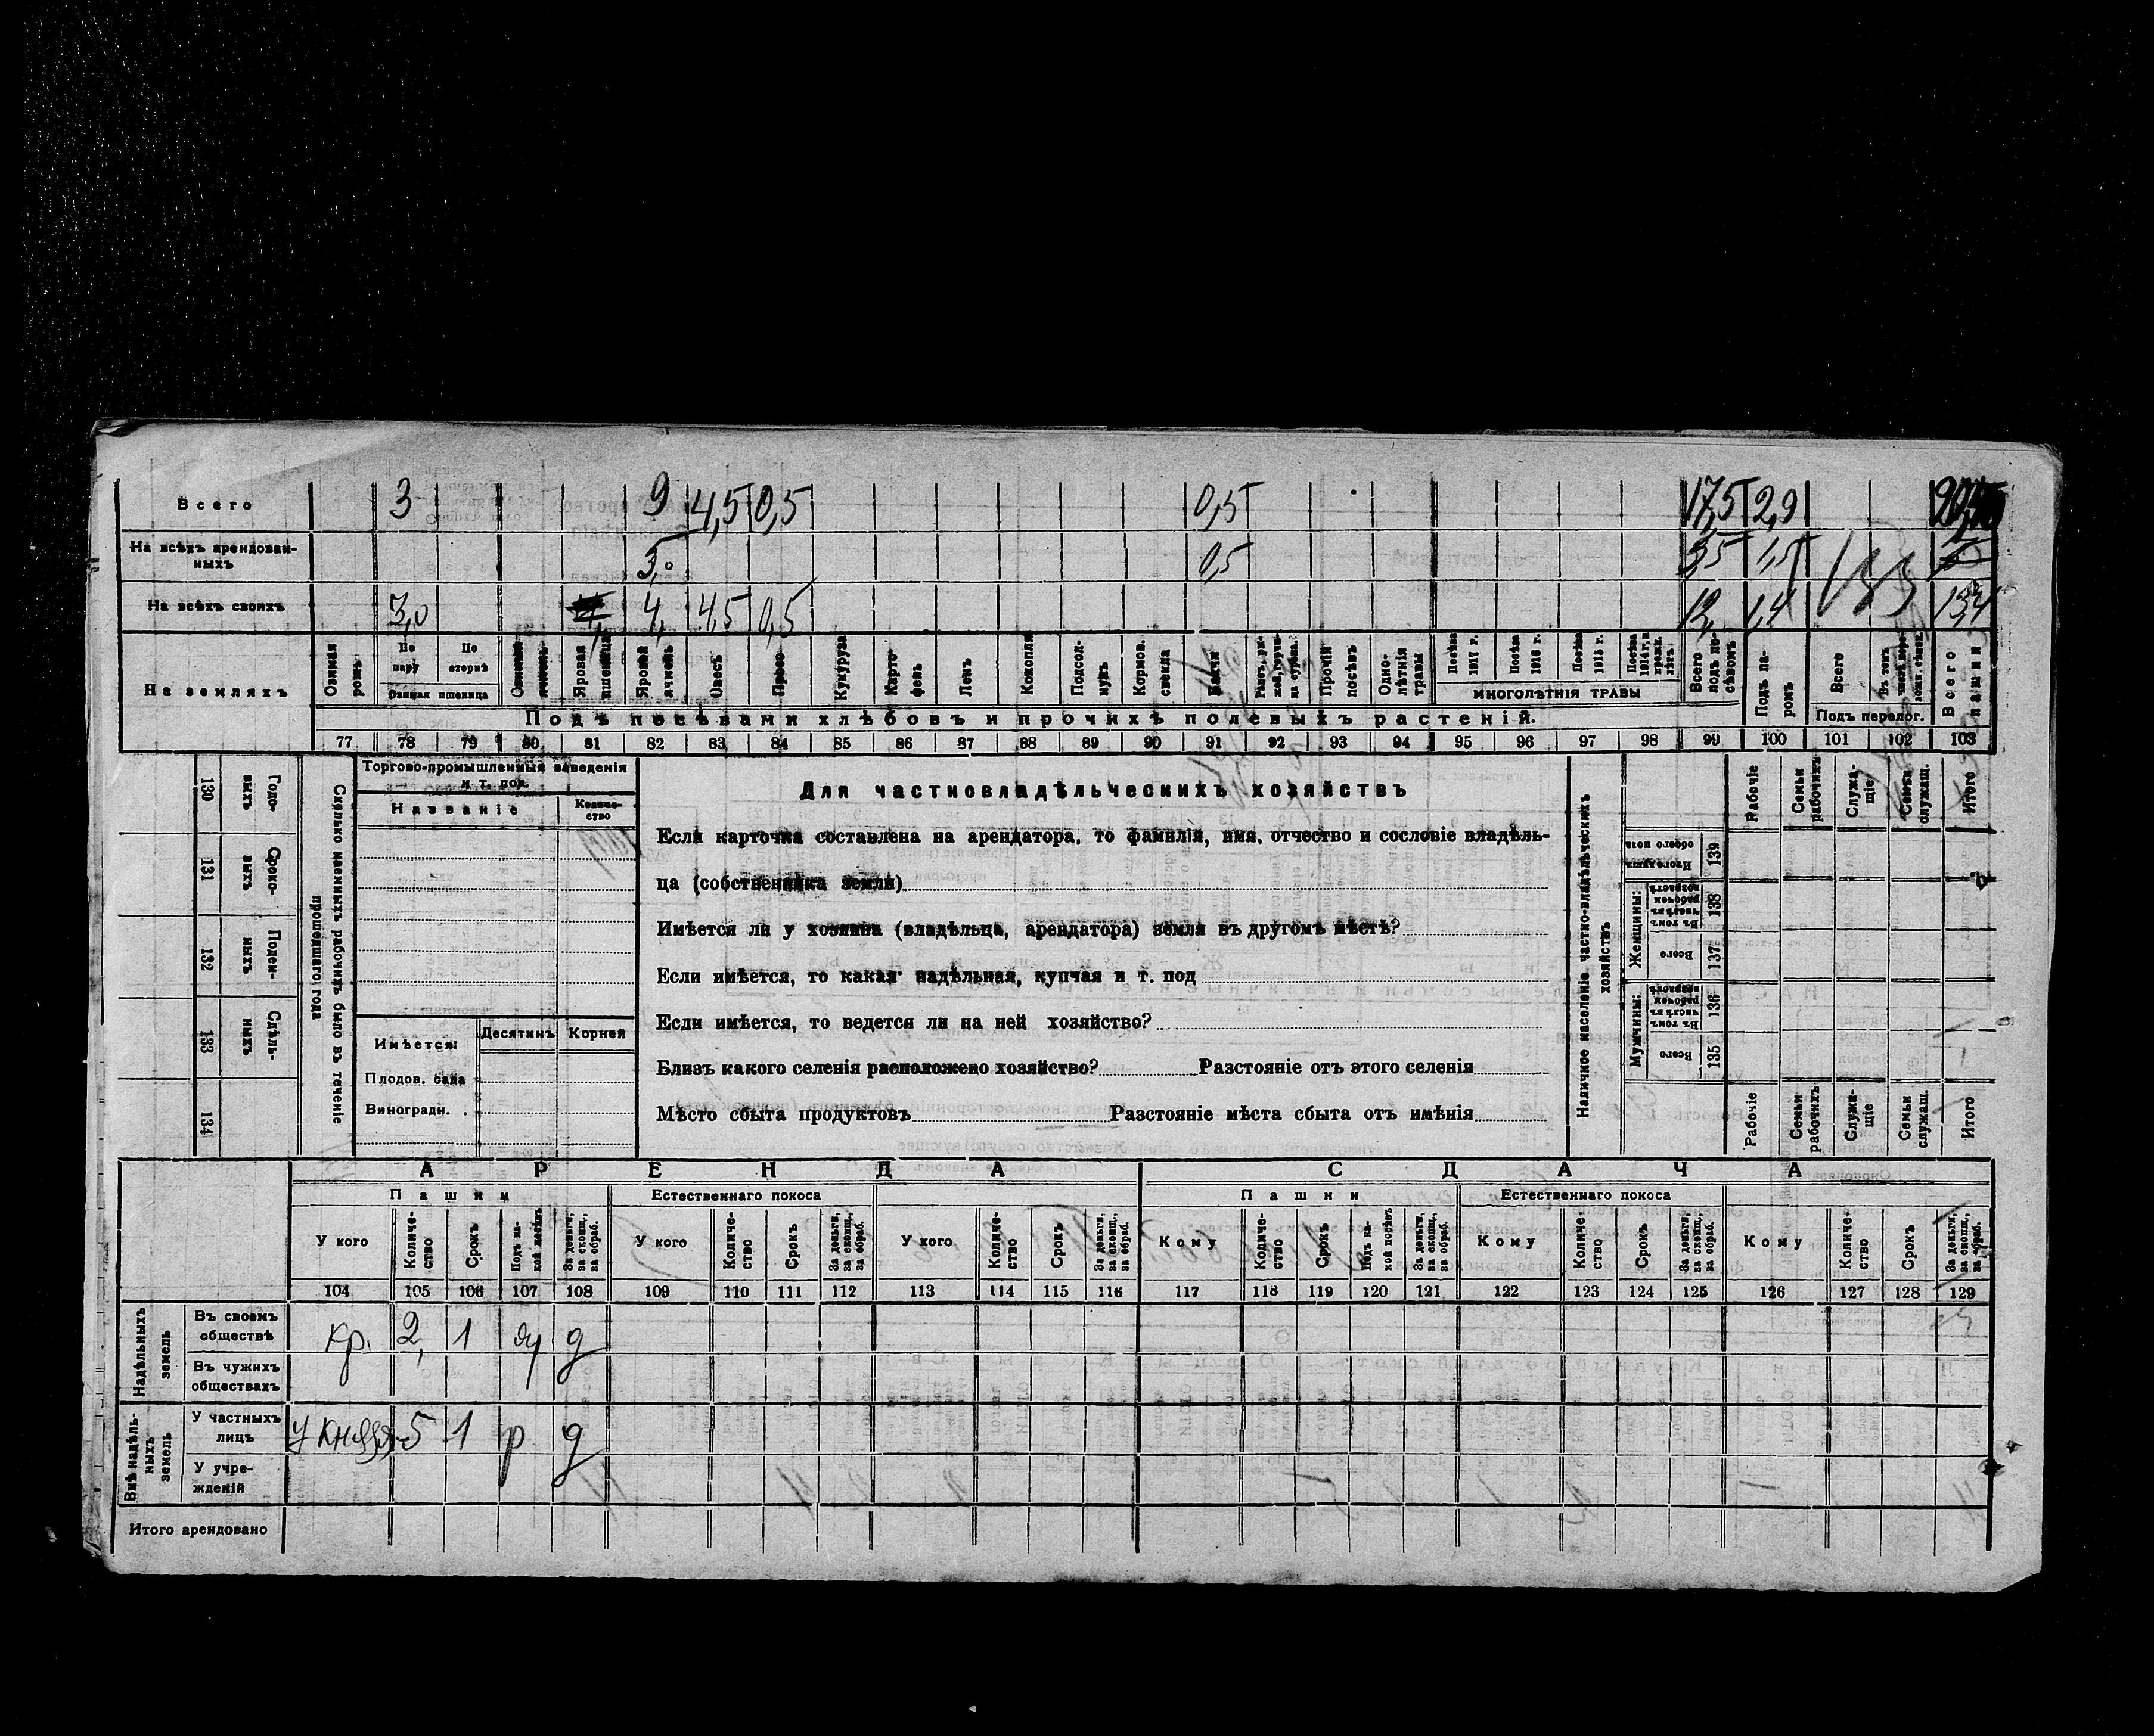 Всего 3 9 4,5 0,5 0,5 17,5 2,9
На всѣхъ арендован-
ныхъ 5,0 0,5 1,5
На всѣхъ своихъ 3,0 4, 4,5 0,5 12, 1,4
На земляхъ
Озимая рожь
По пару
По стернѣ
Озимая пшеница
Яровая пшеница
Яровой ячмень
Овесъ
Просо
Кукуруза
Карто-
фель
Ленъ
Конопля
Подсол-
нухъ
Кормов.
свекла
Бахчи
Прочій посѣвъ
Одно-
лѣтнія травы
Посѣва 1917 г.
Посѣва 1916 г.
Посѣва 1915 г.
МНОГОЛѢТНІЯ ТРАВЫ
Всего подъ по-
сѣвомъ
Подъ па-
ромъ
Всего
Подъ перелог.
Всего пашни
Подъ посѣвами хлѣбовъ и прочихъ полевыхъ растеній.
77 78 79 80 81 82 83 84 85 86 87 88 89 90 91 92 93 94 95 96 97 98 99 100 101 102 103
130 Годо-
выхъ
131 Сроко-
выхъ
132 Поден-
ныхъ
133 Сдѣль-
ныхъ
134
Сколько наемныхъ рабочихъ было въ теченіе
прошедшаго года
Торгово-промышленныя заведенія
и т. под.
Названіе
Количе-
ство
Имѣется:
Десятинъ
Корней
Плодов. сада
Виноградн.
Для частновладѣльческихъ хозяйствъ
Если карточка составлена на арендатора, то фамилія, имя, отчество и сословіе владѣль-
ца (собственника земли)
Имѣется ли у хозяина (владѣльца, арендатора) земля въ другомъ мѣстѣ?
Если имѣется, то какая надѣльная, купчая и т. под
Если имѣется, то ведется ли на ней хозяйство?
Близъ какого селенія расположено хозяйство? Разстояніе отъ этого селенія
Мѣсто сбыта продуктовъ Разстояніе мѣста сбыта отъ имѣнія
Наличное населеніе частно-владѣльческихъ
хозяйствъ
Рабочіе
Семьи рабочихъ
Служа-
щіе
Семьи служащ.
Итого
Итого душъ обоего пола 139
Женщины:
Въ томъ числѣ въ рабочем возрастѣ 138
Всего 137
Мужчины:
Въ томъ числѣ въ рабочем возрастѣ 136
Всего 135
Рабочіе
Семьи рабочихъ
Служа-
щіе
Семьи служащ.
Итого
АРЕНДА
СДАЧА
Пашни
Естественнаго покоса
Пашни
Естественнаго покоса
У кого
Количе-
ство
Срокъ
Подъ ка-
кой посѣвъ
За деньги,
за скопщ.,
за обраб.
У кого
Количе-
ство
Срокъ
За деньги,
за скопщ.,
за обраб.
У кого
Количе-
ство
Срокъ
За деньги,
за скопщ.,
за обраб.
Кому
Количе-
ство
Срокъ
Подъ ка-
кой посѣвъ
За деньги,
за скопщ.,
за обраб.
Кому
Количе-
ство
Срокъ
За деньги,
за скопщ.,
за обраб.
Кому
Количе-
ство
Срокъ
За деньги,
за скопщ.,
за обраб.
104 105 106 107 108 109 110 111 112 113 114 115 116 117 118 119 120 121 122 123 124 125 126 127 128 129
Надѣльныхъ
земель
Въ своемъ
обществѣ кр. 2, 1 д
Въ чужихъ
обществахъ
Внѣ надѣль-
ныхъ
земель
У частныхъ
лицъ у князя 5 1 р д
У учре-
жденій
Итого арендовано